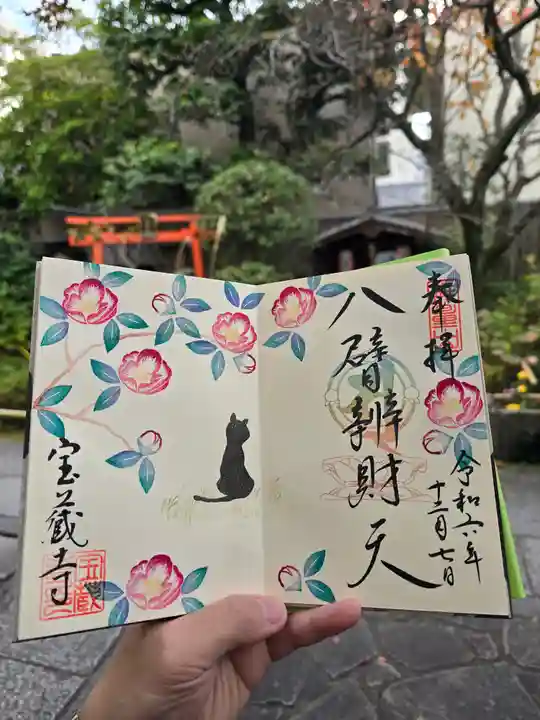 奉拝
令和六年
十二月七日
八臂辨財天
宝蔵寺
宝蔵